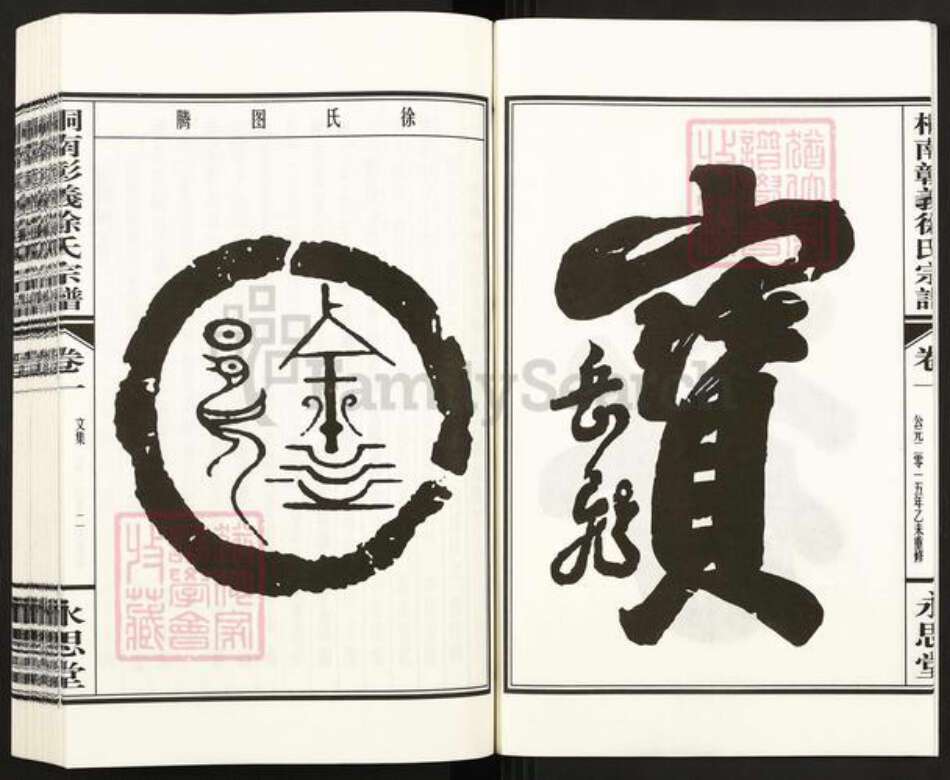 桐南彰義徐氏宗譜
卷一
公元二零一五年乙未重修
永思堂
寶
岳飛
徐氏图腾
桐南彰義徐氏宗譜
卷一
文集
二
永思堂
FamilySearch